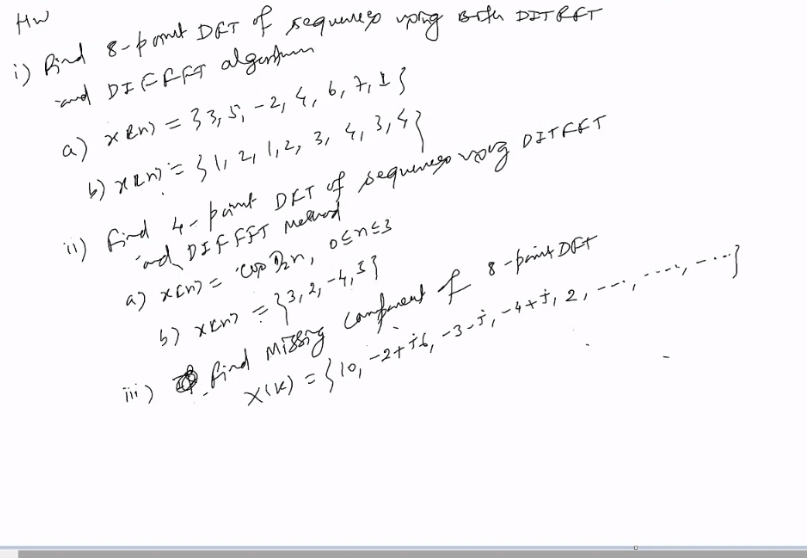 HW
i) Find 8-point DFT of sequences using both DITFFT
and DIFFFT algorithm
a) x(n) = {3, 5, -2, 4, 6, 7, 1}
b) x(n) = {1, 2, 1, 2, 3, 4, 3, 4}
ii) find 4-point DFT of sequences using DITFFT
and DIFFFT Method
a) x(n) = cos π/2 n, 0≤n≤3
b) x(n) = {3, 2, -4, 3}
iii) find Missing component of 8-point DFT
X(k) = {10, -2+j6, -3-j, -4+j, 2, ---, ----, ---}